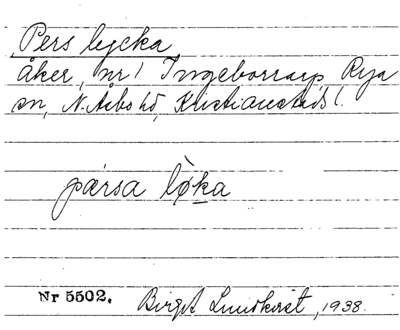 Pers lycka
åker, nr 1 Ingeborrarp, Rya
sn, N. Åsbo hd, Kristianstads l.
pærsa lø̀ka
Nr 5502. Birgit Lundkvist, 1938.